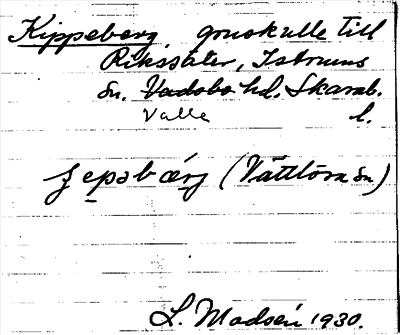 Kippeberg, gruskulle till
Rikssäter, Istrums
sn. Vadsbo hd. Skarab.
Valle l.
ʃepəbærj (Vättlösa sn)
L. Madsén 1930.